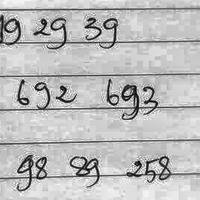 19 29 39
692 693
98 89 258